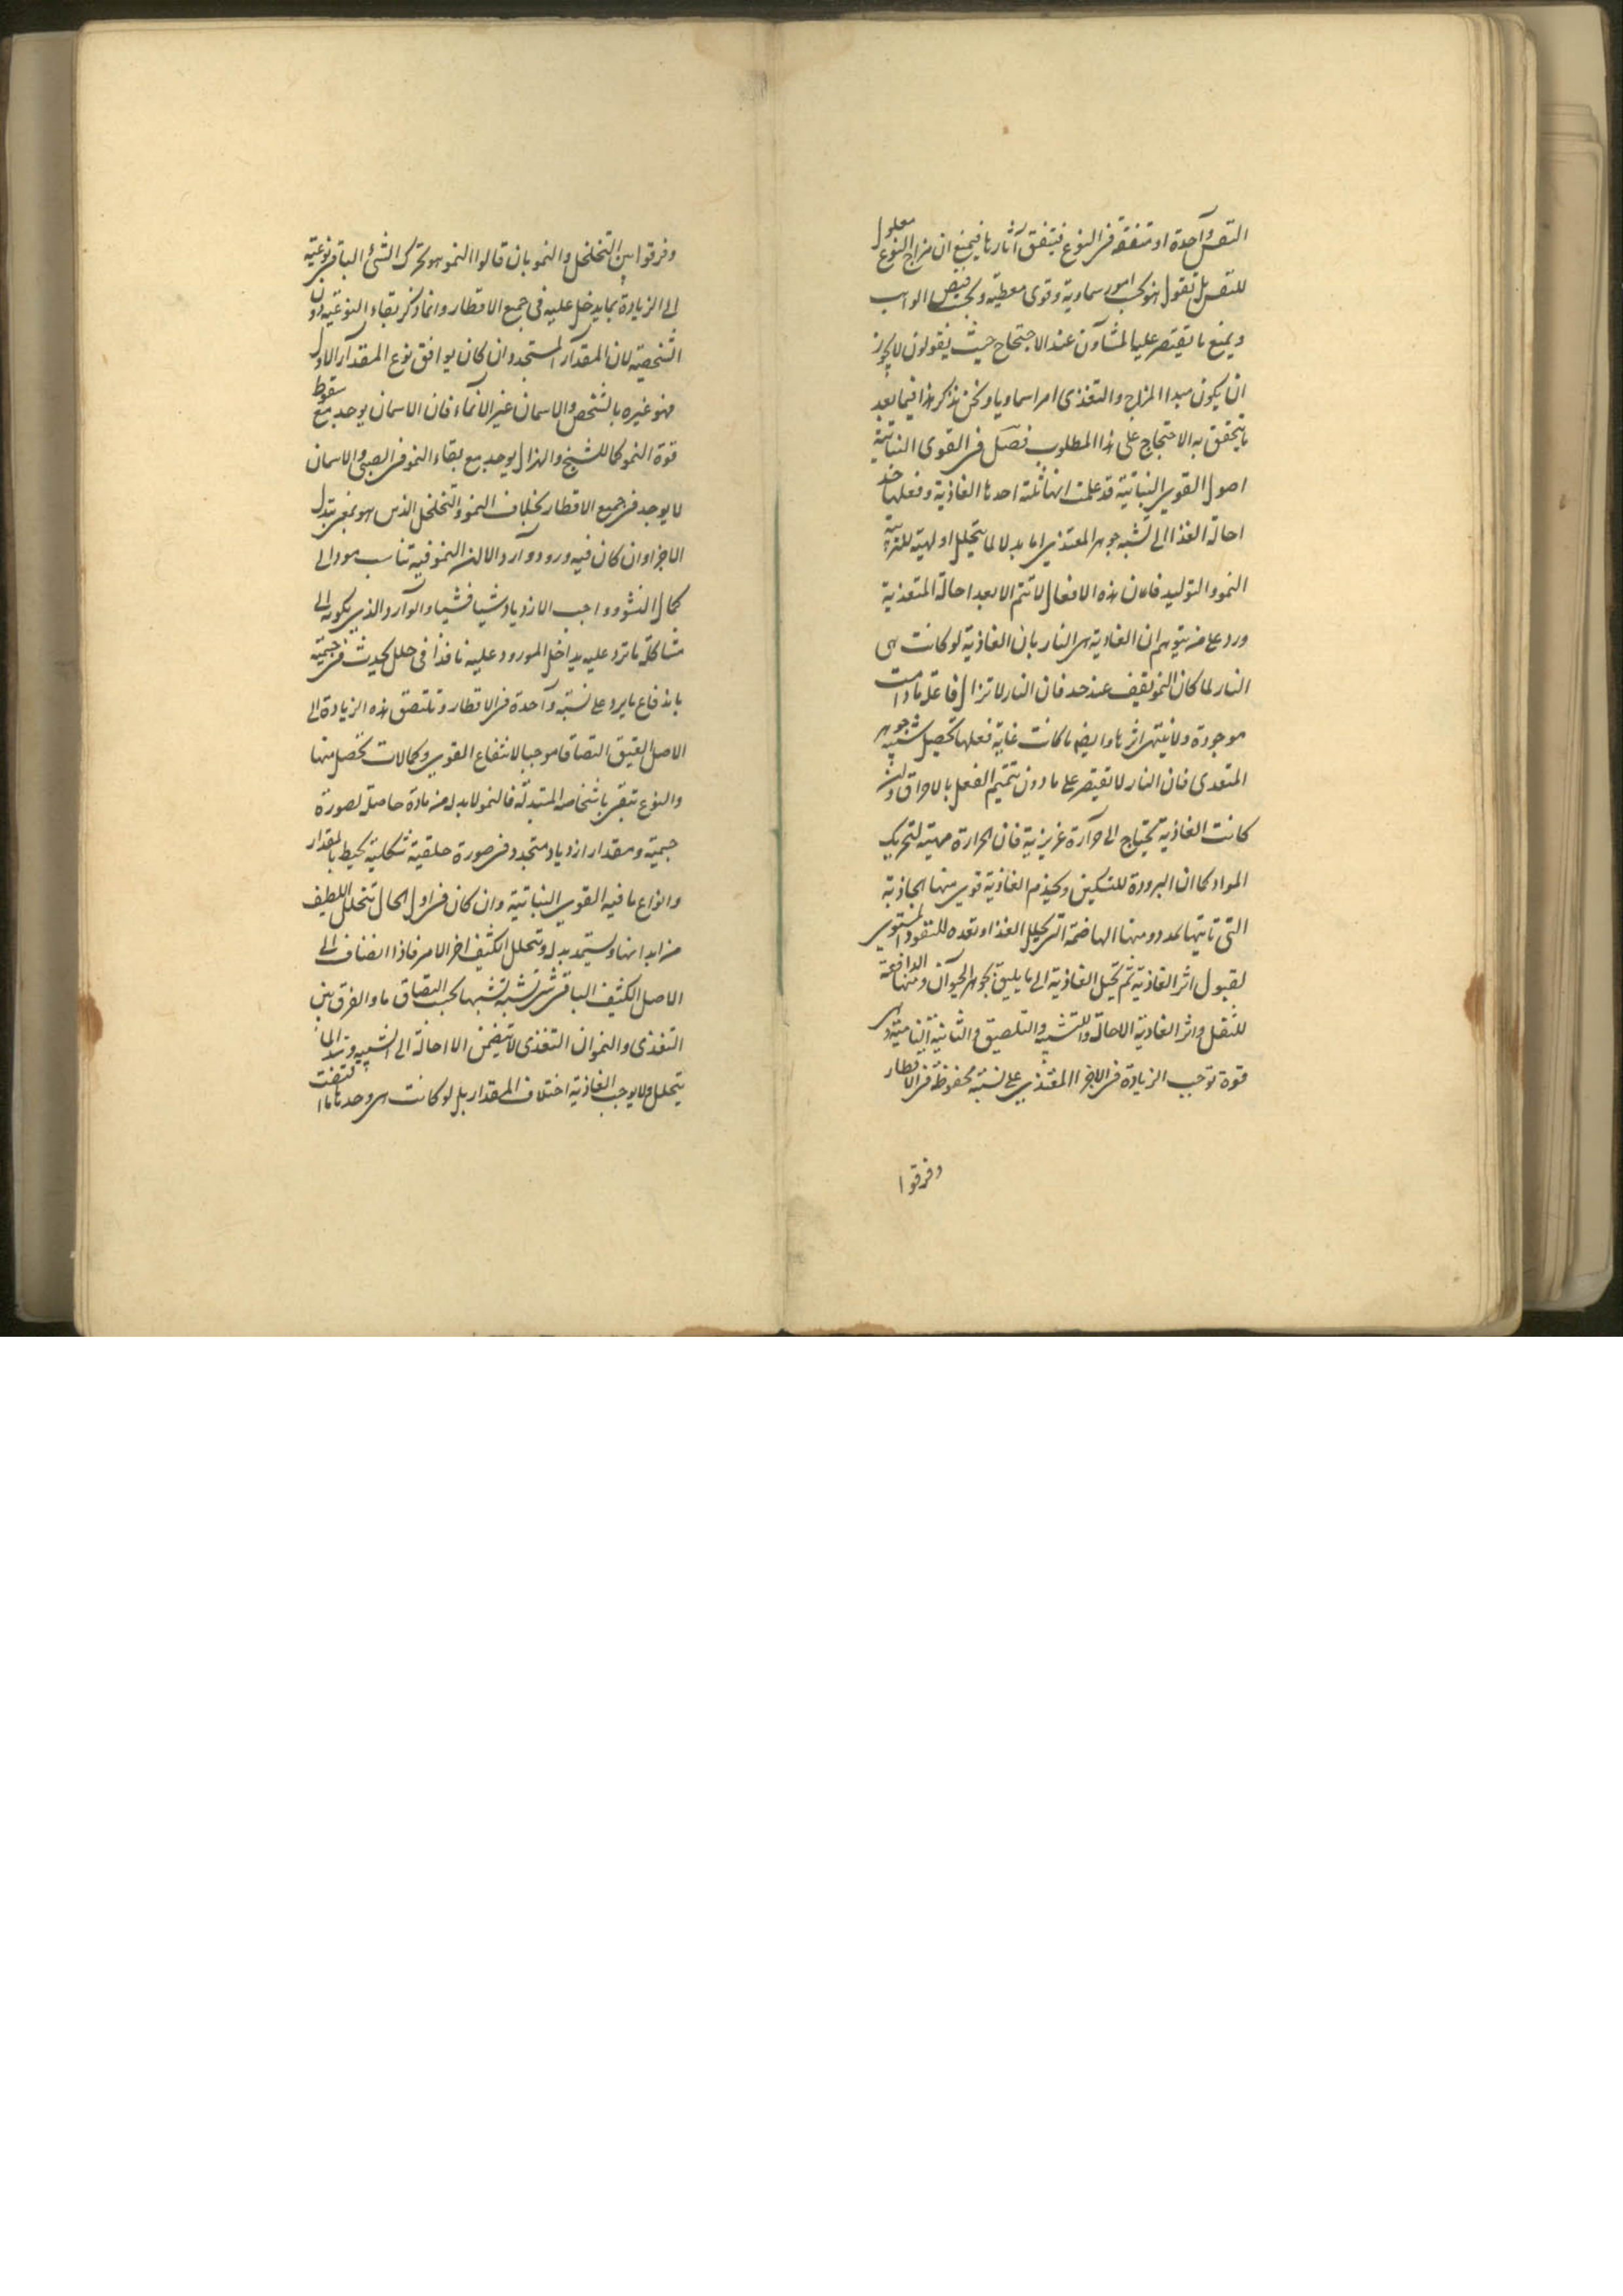 النفس واحدة او متفقة فى النوع فيتفق آثارها فيمنع ان مزاج النوع معلول
للنفس بل نقول هو بحسب امور سماوية وقوى معطية وبحسب فيض الواهب
ويمنع ما يقتصر عليه المشاؤن عند الاحتجاج حيث يقولون لا يجوز
ان يكون مبدا المزاج والتغذى امرا سماويا ونحن نذكر هذا فيما بعد
ما يتحقق به الاحتجاج على هذا المطلوب فصل فى القوى النباتية
اصول القوى النباتية قد علمت انها ثلثة احدها الغاذية وفعلها
احالة الغذا الى تشبه جوهر المغتذى اما بدلا لما يتحلل او لهيئة للتربية
النمو والتوليد فان هذه الافعال لا تتم الا بعد احالة المتغذية
ورد على من يتوهم ان الغاذية هى النار بان الغاذية لو كانت هى
النار لما كان النمو يقف عند حد فان النار لا تزال فاعلة ما دامت
موجودة ولا ينتهى اثرها وايضا ما كانت غاية فعلها تحصيل شبيه جوهر
المتغذى فان النار لا تقتصر على ما دون تتميم الفعل بالاحراق ولئن
كانت الغاذية تحتاج الى حرارة غريزية فان الحرارة مهيئة لتحريك
المواد كما ان البرودة للتسكين ويخدم الغاذية قوى منها الجاذبة
التى تاتيها بمدد ومنها الهاضمة التى تحيل الغذا وتعده للنفوذ المستوى
لقبول اثر الغاذية ثم تحيل الغاذية الى ما يليق بجوهر الحيوان ومنها الدافعة
للثقل واثر الغاذية الاحالة والتشبيه والتلصيق والثانية النامية وهى
قوة توجب الزيادة فى الاجزا المغتذى على نسبة محفوظة فى الاقطار
وفرقوا
وفرقوا بين التخلخل والنمو بان قالوا النمو هو تحرك الشئ الباقى نوعيته
الى الزيادة بما يدخل عليه فى جميع الاقطار وانما ذكر بقاء النوعية دون
الشخصية لان المقدار المستجد وان كان يوافق نوع المقدار الاول
فهو غيره بالشخص والاسمان غير الانماء فان الاسمان يوجد مع سقوط
قوة النمو كما للشيخ والهزال يوجد مع بقاء النمو فى الصبى والاسمان
لا يوجد فى جميع الاقطار بخلاف النمو والتخلخل الذى هو بمعنى تبدل
الاجزا وان كان فيه ورود وارد الا ان النمو فيه تناسب مود الى
كمال النشو وواجب الازدياد شيا فشيا والوارد الذى يكون الى
مشاكلة ما ترد عليه يداخل المورود عليه نافذا فى خلل يحدث فى جسمية
باندفاع ما يرد على نسبة واحدة فى الاقطار وتلتصق هذه الزيادة الى
الاصل العتيق التصاقا موجبا لانتفاع القوى وكمالات تحصل منها
والنوع تبقى باشخاصه المتبدلة فالنمو لا بد له من مادة حاصلة لصورة
جسمية ومقدار ازدياد متجدد فى صورة خلقية شكلية يحيط بالمقدار
وانواع ما فيه القوى النباتية وان كان فى اول الحال تتحلل اللطيف
من ابدانها ويستمد بدله ويتحلل الكثيف اخر الامر فاذا انضاف الى
الاصل الكثيف الباقى شئ تشبه تشبها بحسب التصاق ما والفرق بين
التغذى والنمو ان التغذى لا يتضمن الا احالة الى الشبيه
يتحلل ولا يوجب الغاذية اختلاف المقدار بل لو كانت هى وحدها ما اقتضت